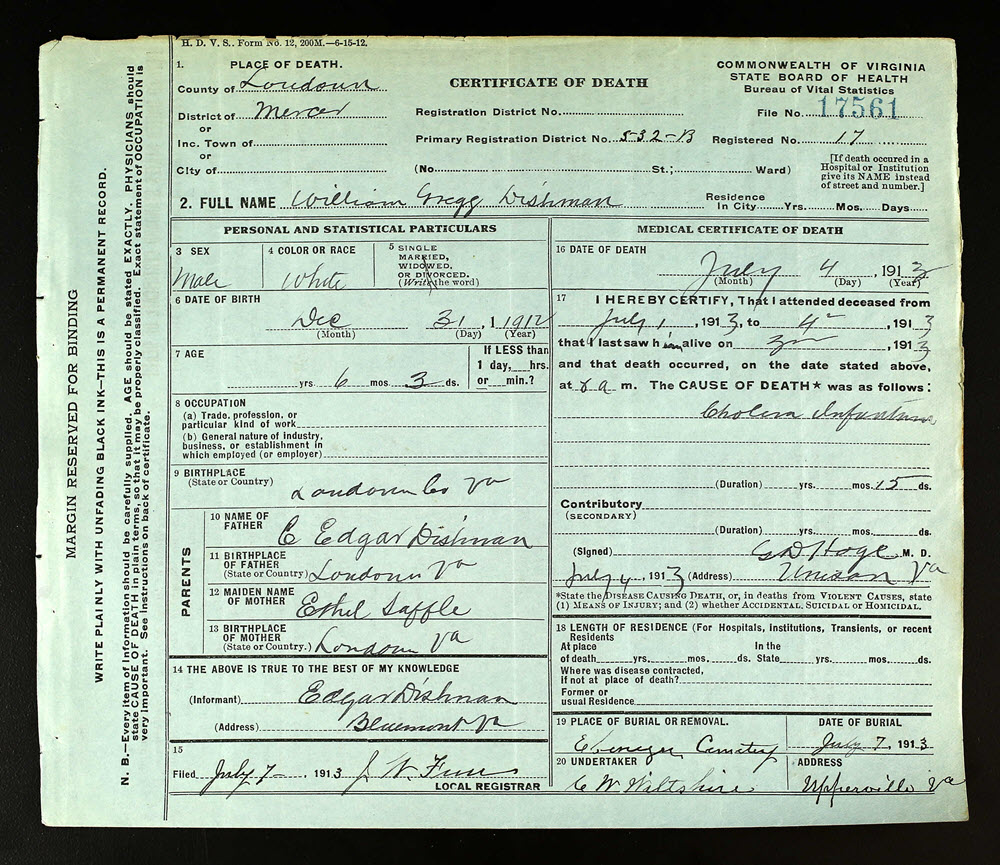 H. D. V. S.. Form No. 12, 200M.—6-15-12.
MARGIN RESERVED FOR BINDING
WRITE PLAINLY WITH UNFADING BLACK INK—THIS IS A PERMANENT RECORD.
N. B.—Every item of Information should be carefully supplied. AGE should be stated EXACTLY. PHYSICIANS should
state CAUSE OF DEATH in plain terms, so that it may be properly classified. Exact statement of OCCUPATION is
very important. See Instructions on back of certificate.
1. PLACE OF DEATH.
County of Loudoun
District of Mercer
or
Inc. Town of
or
City of
CERTIFICATE OF DEATH
Registration District No.
Primary Registration District No. 532-B
(No. St.; Ward)
COMMONWEALTH OF VIRGINIA
STATE BOARD OF HEALTH
Bureau of Vital Statistics
File No. 17561
Registered No. 17
[If death occured in a
Hospital or Institution
give its NAME instead
of street and number.]
2. FULL NAME William Gregg Dishman
Residence
In City Yrs. Mos. Days
PERSONAL AND STATISTICAL PARTICULARS
3 SEX
Male
4 COLOR OR RACE
White
5 SINGLE
MARRIED,
WIDOWED,
OR DIVORCED.
(Write the word)
6 DATE OF BIRTH
Dec 31, 1 1912
(Month) (Day) (Year)
7 AGE
If LESS than
1 day, hrs.
yrs. 6 mos. 3 ds. or min.?
8 OCCUPATION
(a) Trade, profession, or
particular kind of work
(b) General nature of industry,
business, or establishment in
which employed (or employer)
9 BIRTHPLACE
(State or Country) Loudoun Co Va
PARENTS
10 NAME OF
FATHER C Edgar Dishman
11 BIRTHPLACE
OF FATHER
(State or Country) Loudoun Va
12 MAIDEN NAME
OF MOTHER Ethel Saffle
13 BIRTHPLACE
OF MOTHER
(State or Country.) Loudoun Va
14 THE ABOVE IS TRUE TO THE BEST OF MY KNOWLEDGE
(Informant) Edgar Dishman
(Address) Bluemont Va
15
Filed July 7, 1913 J. N.
LOCAL REGISTRAR
MEDICAL CERTIFICATE OF DEATH
16 DATE OF DEATH
July 4, 1913
(Month) (Day) (Year)
17 I HEREBY CERTIFY, That I attended deceased from
July 1, 1913, to 4, 1913
that I last saw him alive on, 1913
and that death occurred, on the date stated above,
at a m. The CAUSE OF DEATH* was as follows:
Cholera Infantum
(Duration) yrs. mos. 15 ds.
Contributory
(SECONDARY)
(Duration) yrs. mos. ds.
(Signed) G D Hoge M. D.
July 4, 1913 (Address) Unison Va
*State the DISEASE CAUSING DEATH, or, in deaths from VIOLENT CAUSES, state
(1) MEANS OF INJURY; and (2) whether ACCIDENTAL, SUICIDAL or HOMICIDAL.
18 LENGTH OF RESIDENCE (For Hospitals, Institutions, Transients, or recent
Residents
At place In the
of death yrs. mos. ds. State yrs. mos. ds.
Where was disease contracted,
if not at place of death?
Former or
usual Residence
19 PLACE OF BURIAL OR REMOVAL.
Ebenezer Cemetery
DATE OF BURIAL
July 7, 1913
20 UNDERTAKER
C W Wiltshire
ADDRESS
Upperville Va